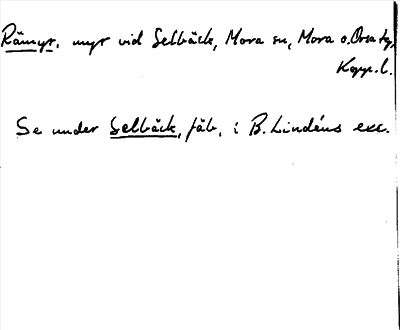 Rämyr, myr vid Selbäck, Mora sn, Mora o. Orsa tg,
Kopp. l.
Se under Selbäck, fäb, i B. Lindéns exc.